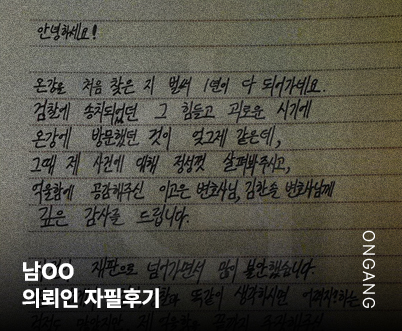 안녕하세요!
온강을 처음 찾은 지 벌써 1년이 다 되어가네요.
검찰에 송치되었던 그 힘들고 괴로운 시기에
온강에 방문했던 것이 엊그제 같은데,
그때 제 사건에 대해 정성껏 살펴봐주시고,
억울함에 공감해주신 이고은 변호사님, 김한솔 변호사님께
깊은 감사를 드립니다.
재판으로 넘어가면서 많이 불안했습니다.
똑같이 생각하시면
남OO
의뢰인 자필후기
ONGANG